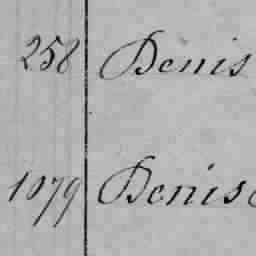 258 Denis
1079 Denis